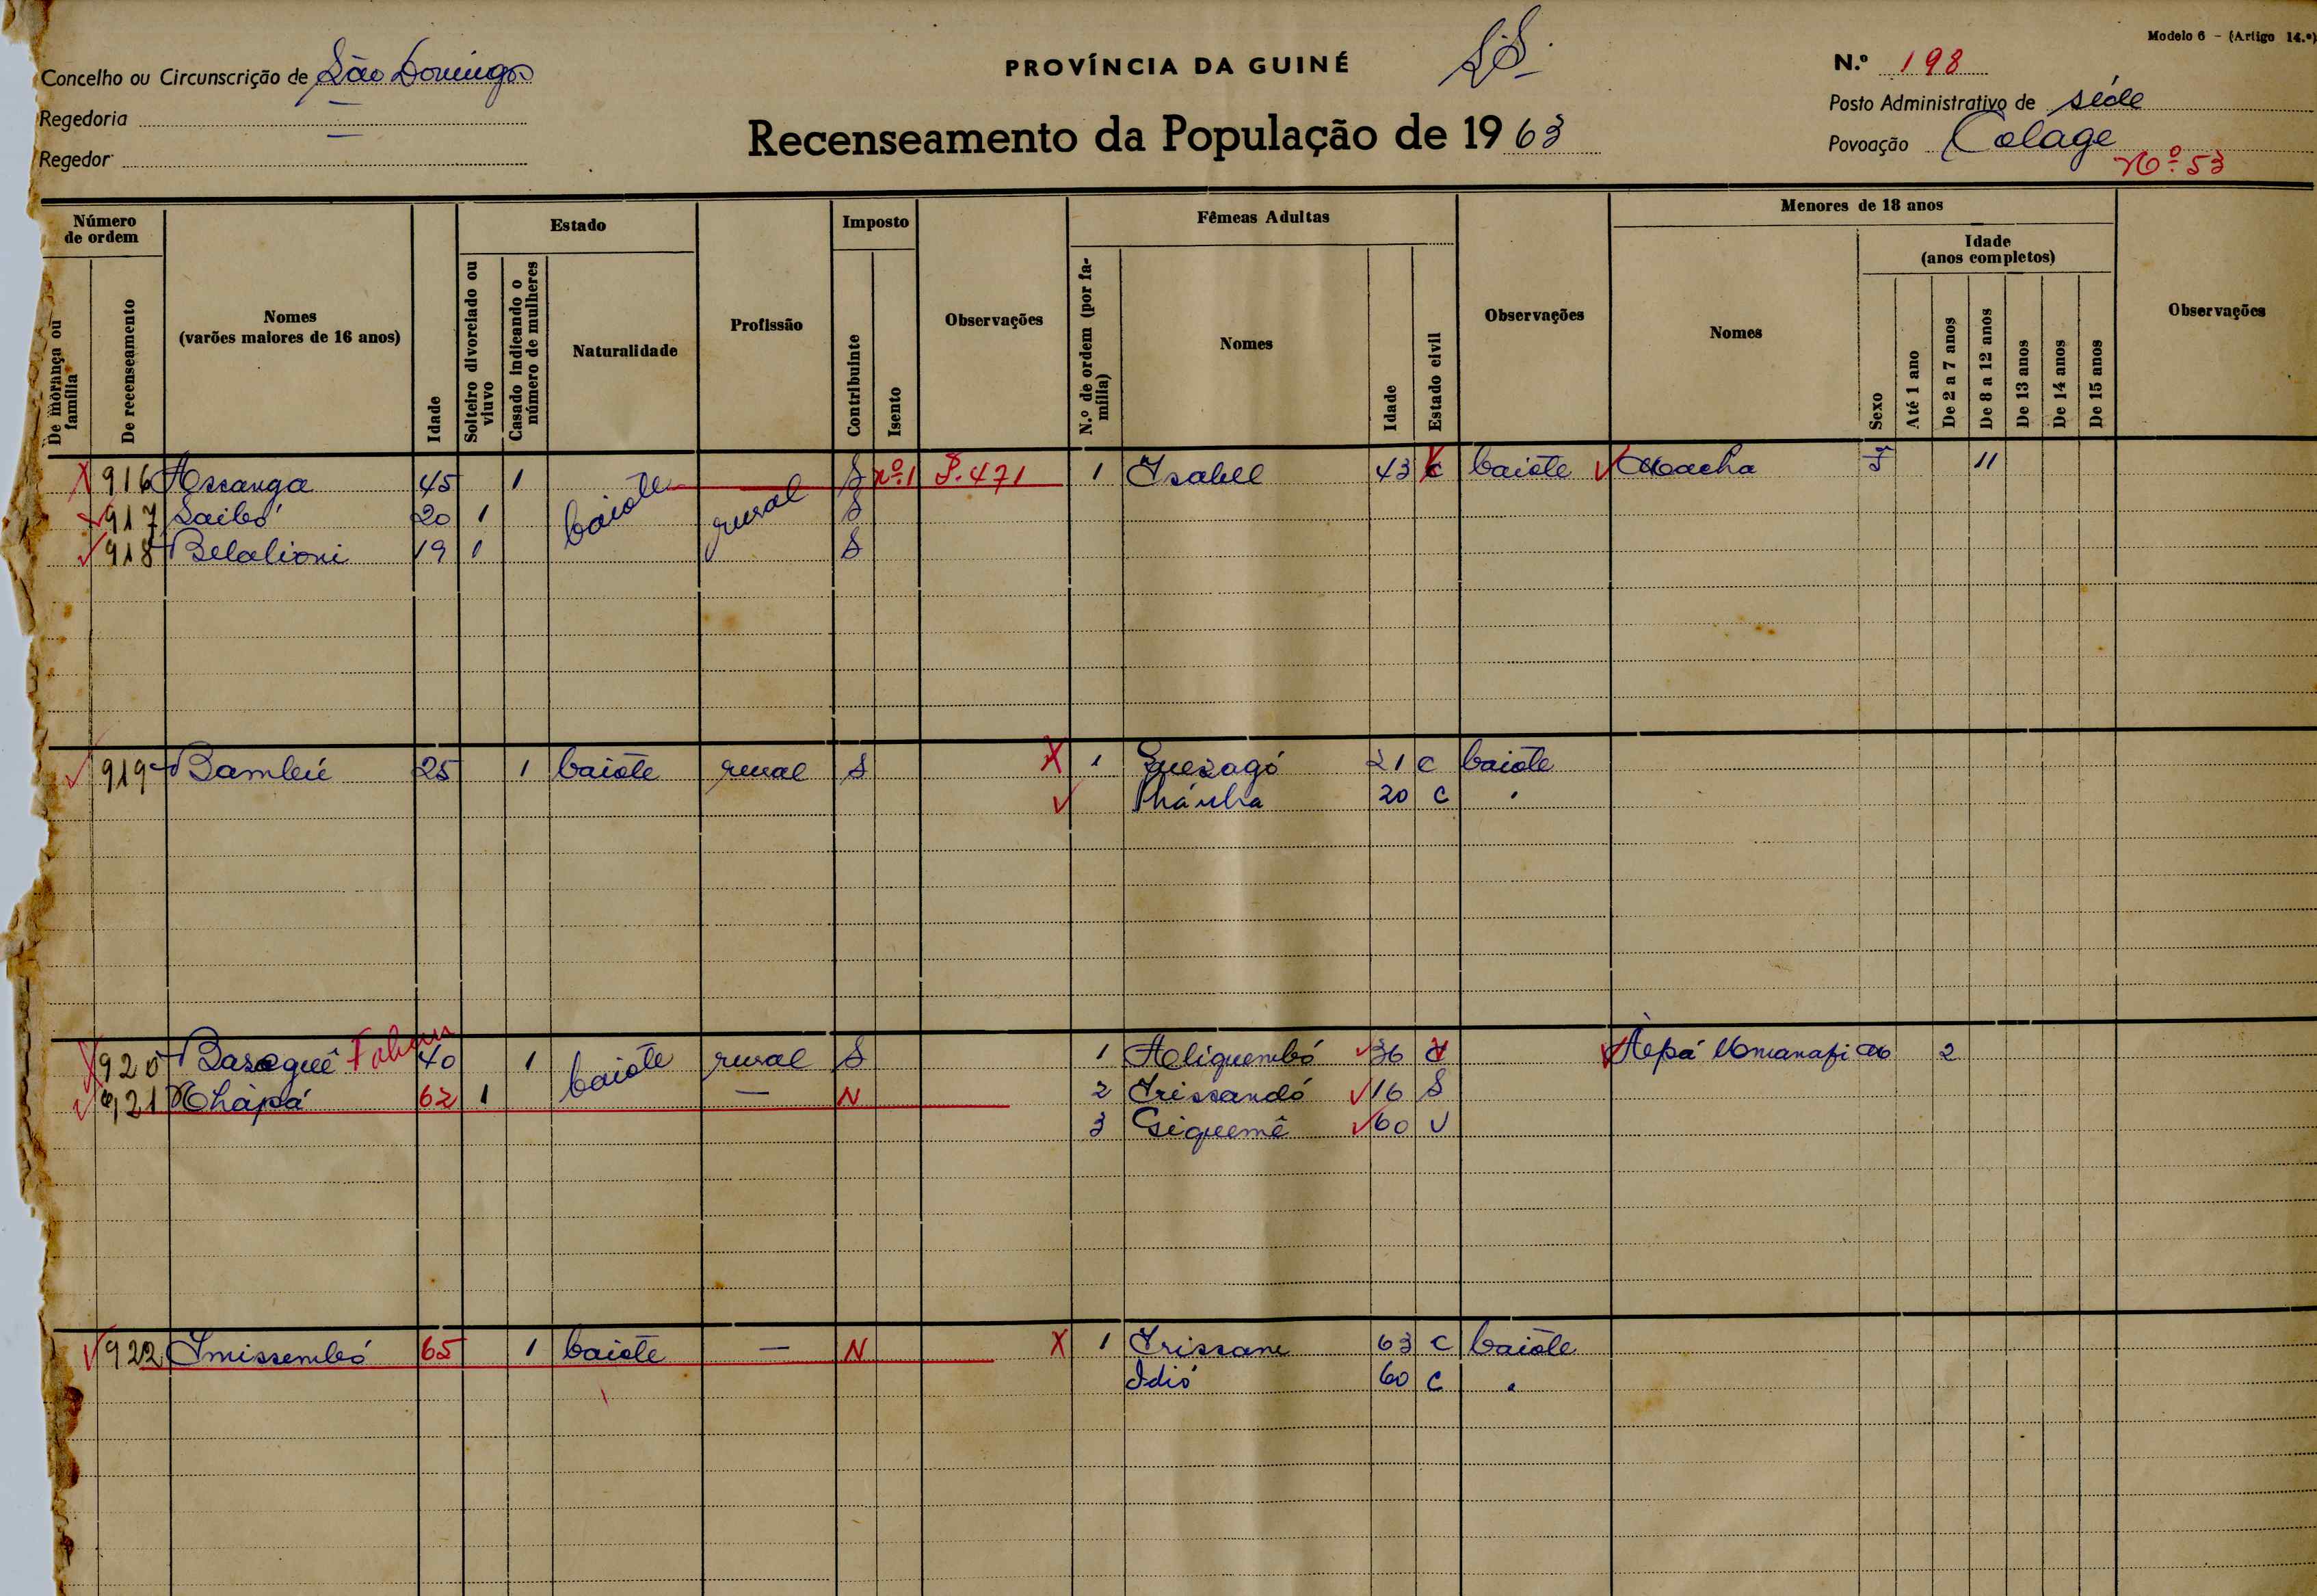 Modelo 6 - (Artigo 14.º)
Concelho ou Circunscrição de São Domingos
PROVÍNCIA DA GUINÉ
N.º 198
Regedoria —
Posto Administrativo de séde
Regedor —
Recenseamento da População de 1963
Povoação Colage
Nº 53
Número de ordem
De morança ou família
De recenseamento
Nomes
(varões maiores de 16 anos)
Idade
Estado
Solteiro divorciado ou viuvo
Casado indicando o número de mulheres
Naturalidade
Profissão
Imposto
Contribuinte
Isento
Observações
Fêmeas Adultas
N.º de ordem (por família)
Nomes
Idade
Estado civil
Observações
Menores de 18 anos
Nomes
Sexo
Idade
(anos completos)
Até 1 ano
De 2 a 7 anos
De 8 a 12 anos
De 13 anos
De 14 anos
De 15 anos
Observações
916 Ascanga 45 1 baiote rural S nº1 P.471 1 Isabel 43 c baiote Macha F 11
917 Saibó 20 1 S
918 Belalioni 19 1 S
919 Bambué 25 1 baiote rural S 1 Quezagó 21 c baiote
20 c "
920 Basoguê 40 1 baiote rural S 1 Aliquembó 36 Àepá M 2
921 Nhápá 62 1 — N 2 Trissandó 16 S
3 Siquemê 60 V
922 Imissembó 65 1 baiote — N 1 Trissane 63 c baiote
Idió 60 c "